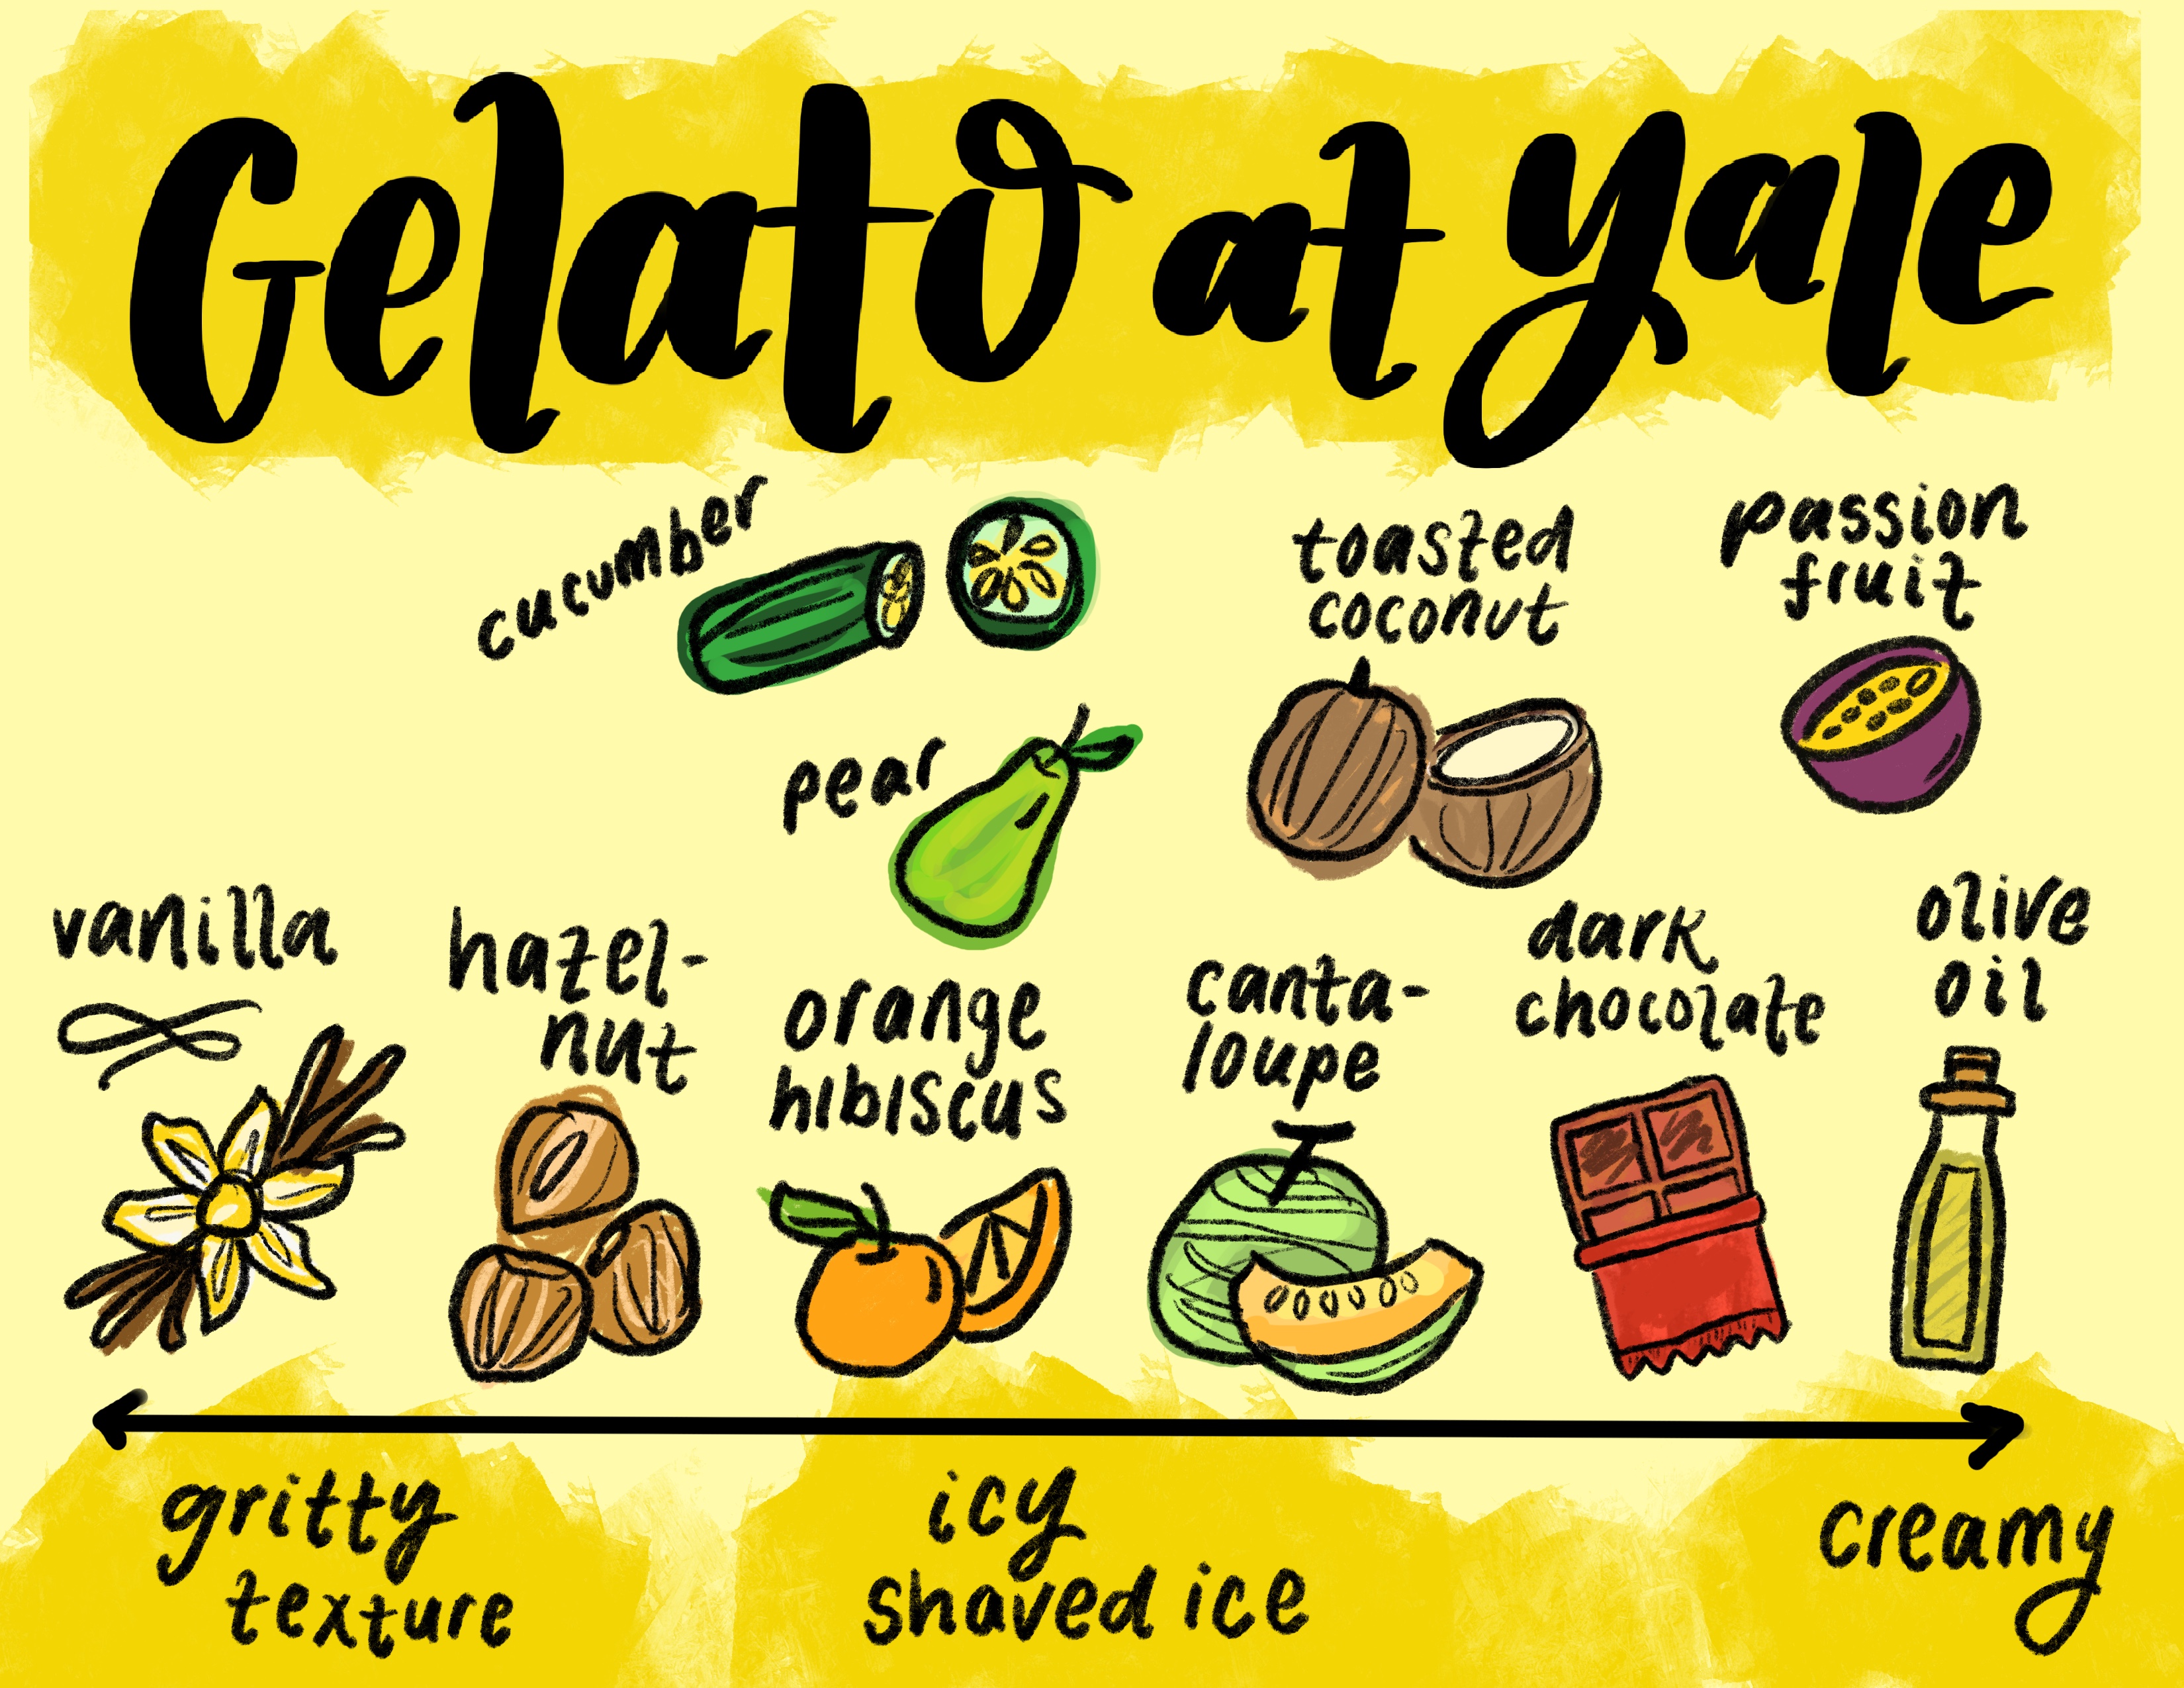 Gelato at Yale
cucumber
toasted
coconut
passion
fruit
pear
vanilla
hazel-
nut
orange
hibiscus
canta-
loupe
dark
chocolate
olive
oil
gritty
texture
icy
shaved ice
creamy